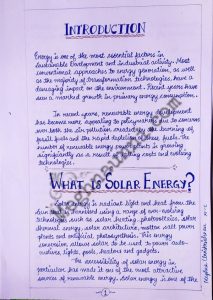 INTRODUCTION
Energy is one of the most essential factors in
sustainable development and industrial activity. Most
conventional approaches to energy generation, as well
as the majority of transformation technologies, have a
damaging impact on the environment. Recent years have
seen a marked growth in primary energy consumption.
In recent years, renewable energy equipment
has become more appealing to policymakers due to concerns
over both the pollution created by the burning of
fossil fuels and the rapid depletion of these fuels. The
number of renewable energy equipments is growing
significantly as a result of falling costs and evolving
technologies.
WHAT IS SOLAR ENERGY?
Solar energy is radiant light and heat from the
Sun that is harnessed using a range of ever-evolving
technologies such as solar heating, photovoltaics, solar
thermal energy, solar architecture, molten salt power
plants and artificial photosynthesis. This energy
conversion allows solar to be used to power auto-
motives, lights, pools, heaters and gadgets.
The accessibility of solar energy in
particular has made it one of the most attractive
sources of renewable energy. Solar energy is one of the
1